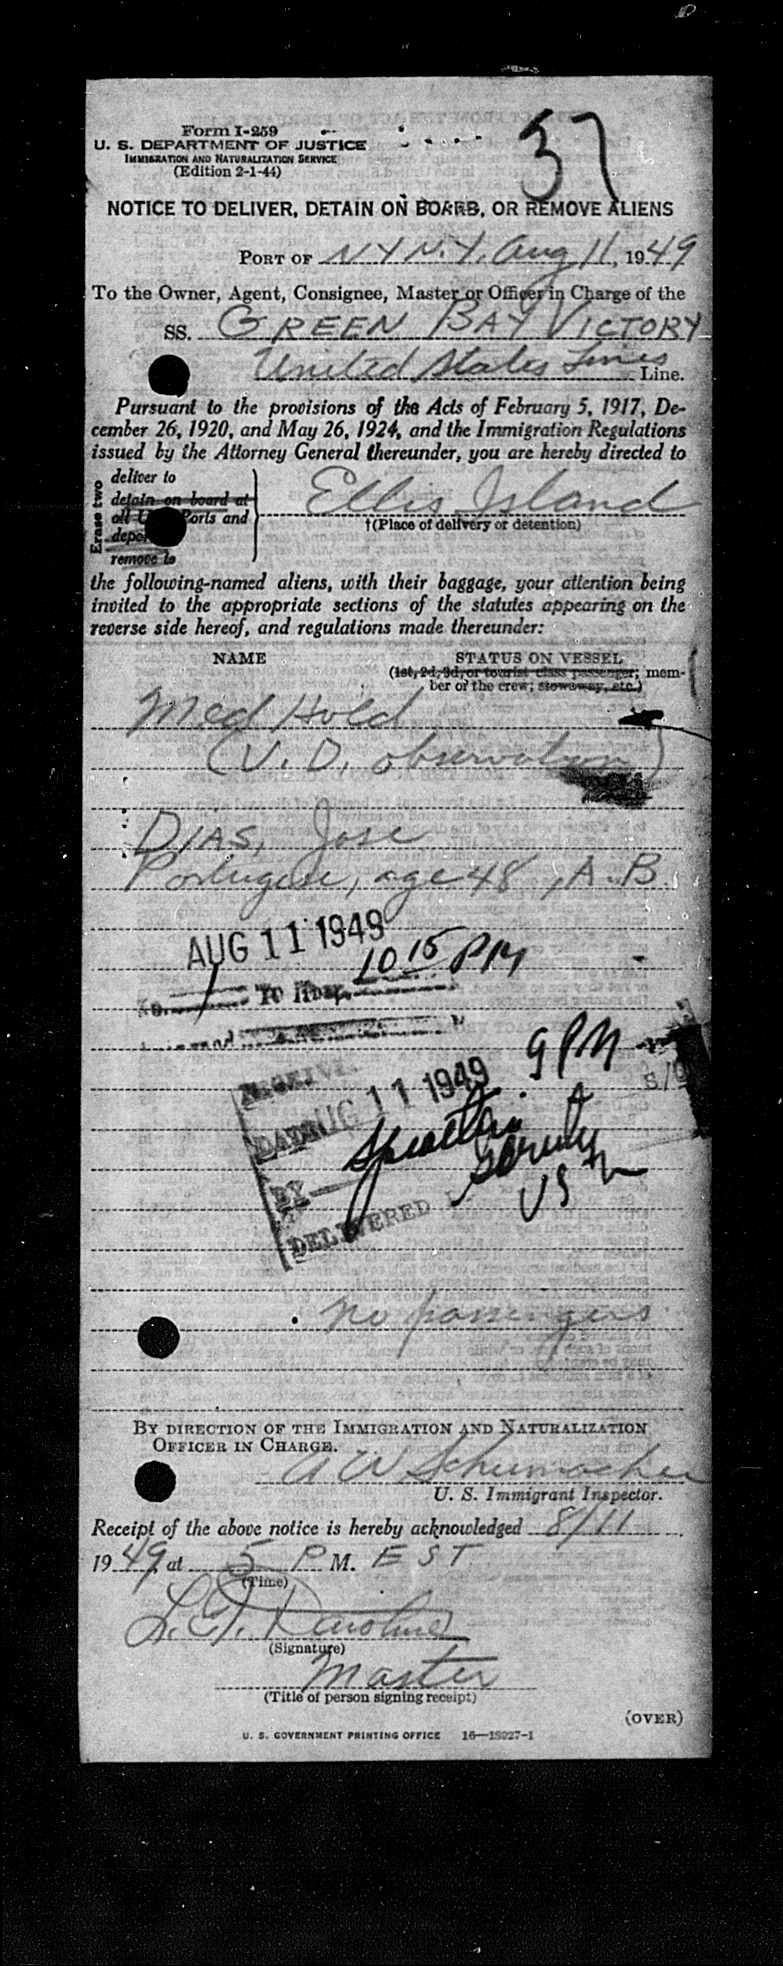 37
Form I-259
U. S. DEPARTMENT OF JUSTICE
IMMIGRATION AND NATURALIZATION SERVICE
(Edition 2-1-44)
NOTICE TO DELIVER, DETAIN ON BOARD, OR REMOVE ALIENS
PORT OF N Y N.Y. Aug 11, 1949
To the Owner, Agent, Consignee, Master or Officer in Charge of the
SS. GREEN BAY VICTORY
United States Lines Line.
Pursuant to the provisions of the Acts of February 5, 1917, De-
cember 26, 1920, and May 26, 1924, and the Immigration Regulations
issued by the Attorney General thereunder, you are hereby directed to
Erase two
deliver to
detain on board at
all U Ports and
remove to
Ellis Island
†(Place of delivery or detention)
the following-named aliens, with their baggage, your attention being
invited to the appropriate sections of the statutes appearing on the
reverse side hereof, and regulations made thereunder:
NAME STATUS ON VESSEL
(1st, 2d, 3d, or tourist class passenger; mem-
ber of the crew; stowaway, etc.)
Med Hold
(V. D. observation)
DIAS, Jose
Portuguese, age 48, A.B.
AUG 11 1949
No. 1 To Hosp. 10 15 PM
9 PM
RECEIVED
DATE AUG 11 1949
BY
DELIVERED
no passengers
BY DIRECTION OF THE IMMIGRATION AND NATURALIZATION
OFFICER IN CHARGE.
A W Schumacher
U. S. Immigrant Inspector.
Receipt of the above notice is hereby acknowledged 8/11
1949 at 5 P M. EST
(Time)
L. G.
(Signature)
Master
(Title of person signing receipt)
(OVER)
U. S. GOVERNMENT PRINTING OFFICE 16—18927-1